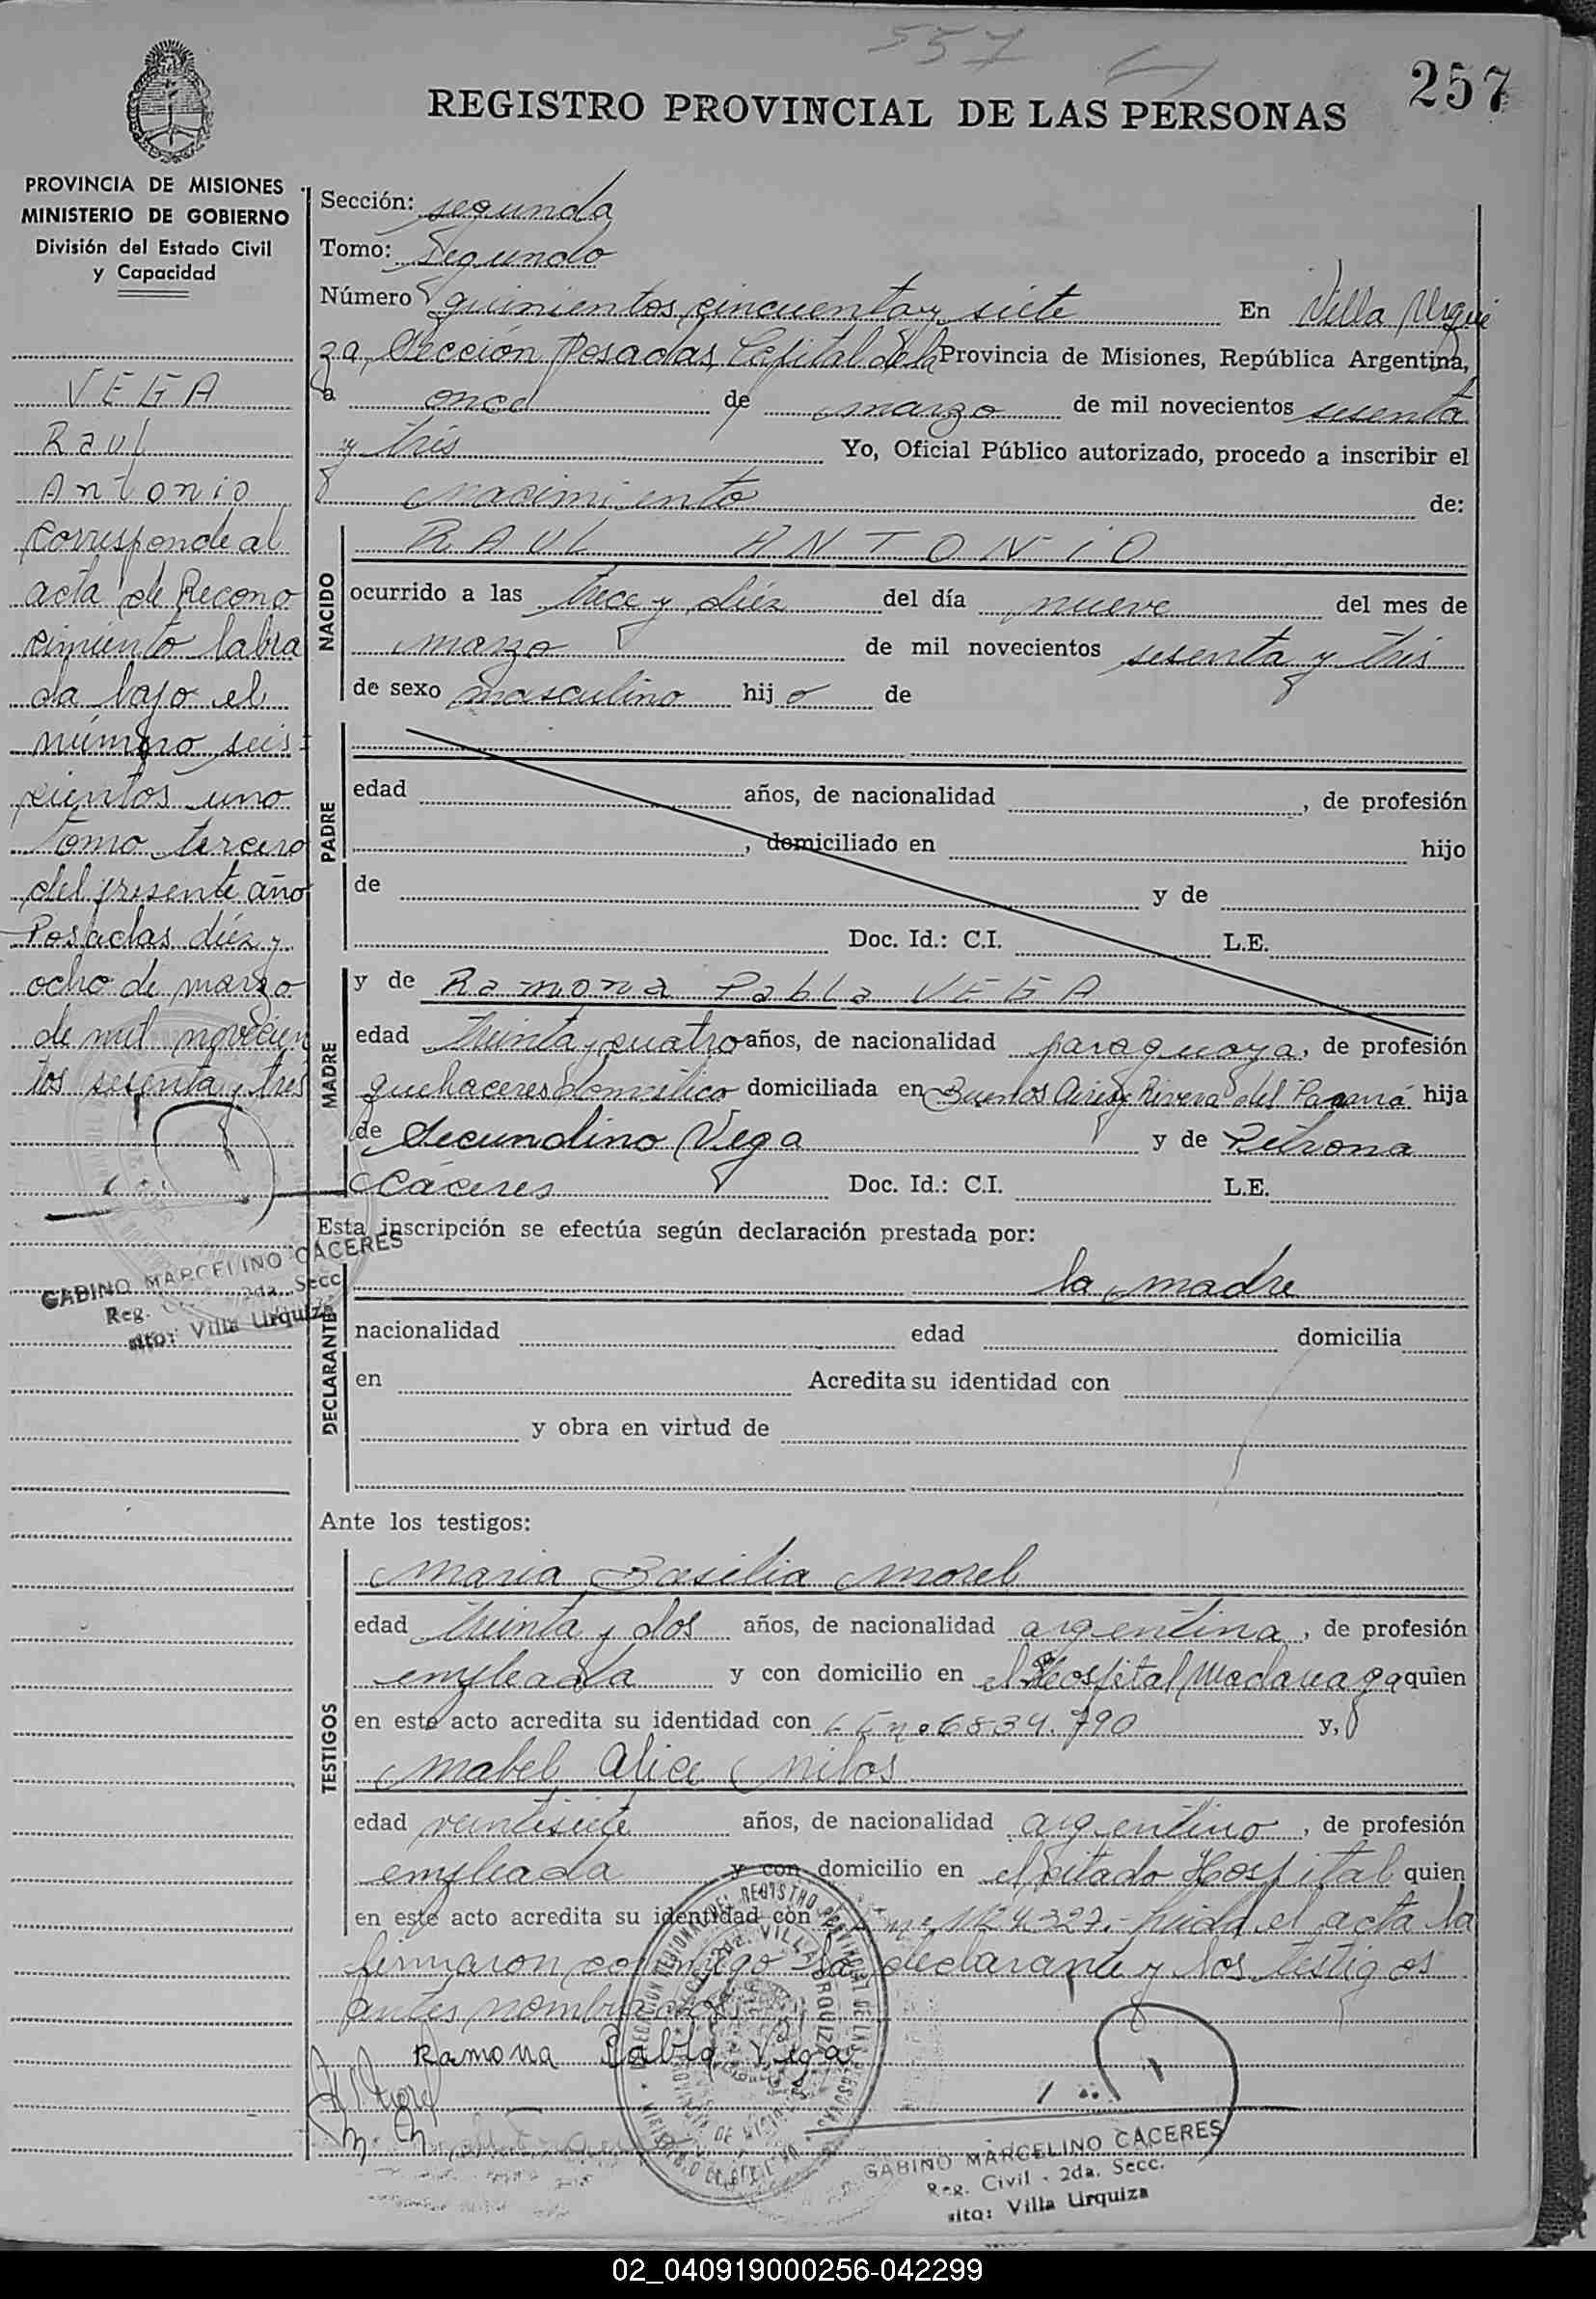 557
257
REGISTRO PROVINCIAL DE LAS PERSONAS
PROVINCIA DE MISIONES
MINISTERIO DE GOBIERNO
División del Estado Civil
y Capacidad
VEGA
Raul
Antonio
corresponde al
acta de Recono
cimiento labra
da bajo el
número seis=
cientos uno
tomo tercero
del presente año
Posadas diéz y
ocho de marzo
de mil novecien
tos sesenta y tres
GABINO MARCELINO CACERES
Reg. 2da. Secc
sito: Villa Urquiza
Sección: segunda
Tomo: Segundo
Número quinientos cincuenta y siete En Villa Urqui
za, Sección Posadas, Capital de la Provincia de Misiones, República Argentina,
a once de marzo de mil novecientos sesenta
y tres Yo, Oficial Público autorizado, procedo a inscribir el
nacimiento de:
NACIDO
RAUL ANTONIO
ocurrido a las trece y diéz del día nueve del mes de
marzo de mil novecientos sesenta y tres
de sexo masculino hijo de
PADRE
edad años, de nacionalidad , de profesión
, domiciliado en hijo
de y de
Doc. Id.: C.I. L.E.
MADRE
y de Ramona Pabla VEGA
edad treinta y cuatro años, de nacionalidad paraguaya, de profesión
quehaceres domésticos domiciliada en Buenos Aires y Rivera del Paraná hija
de Secundino Vega y de Petrona
Cáceres Doc. Id.: C.I. L.E.
Esta inscripción se efectúa según declaración prestada por:
DECLARANTE
la madre
nacionalidad edad domicilia
en Acredita su identidad con
y obra en virtud de
Ante los testigos:
TESTIGOS
Maria Basilia Morel
edad treinta y dos años, de nacionalidad argentina, de profesión
empleada y con domicilio en el Hospital Madariaga quien
en este acto acredita su identidad con nº 6834.790 y,
Mabel Alice Milos
edad veintisiete años, de nacionalidad argentino, de profesión
empleada y con domicilio en el citado Hospital quien
en este acto acredita su identidad con leida el acta la
firmaron conmigo la declarante y los testigos
antes nombrados
Ramona Pabla Vega
GABINO MARCELINO CACERES
Reg. Civil - 2da. Secc.
sito: Villa Urquiza
02_040919000256-042299